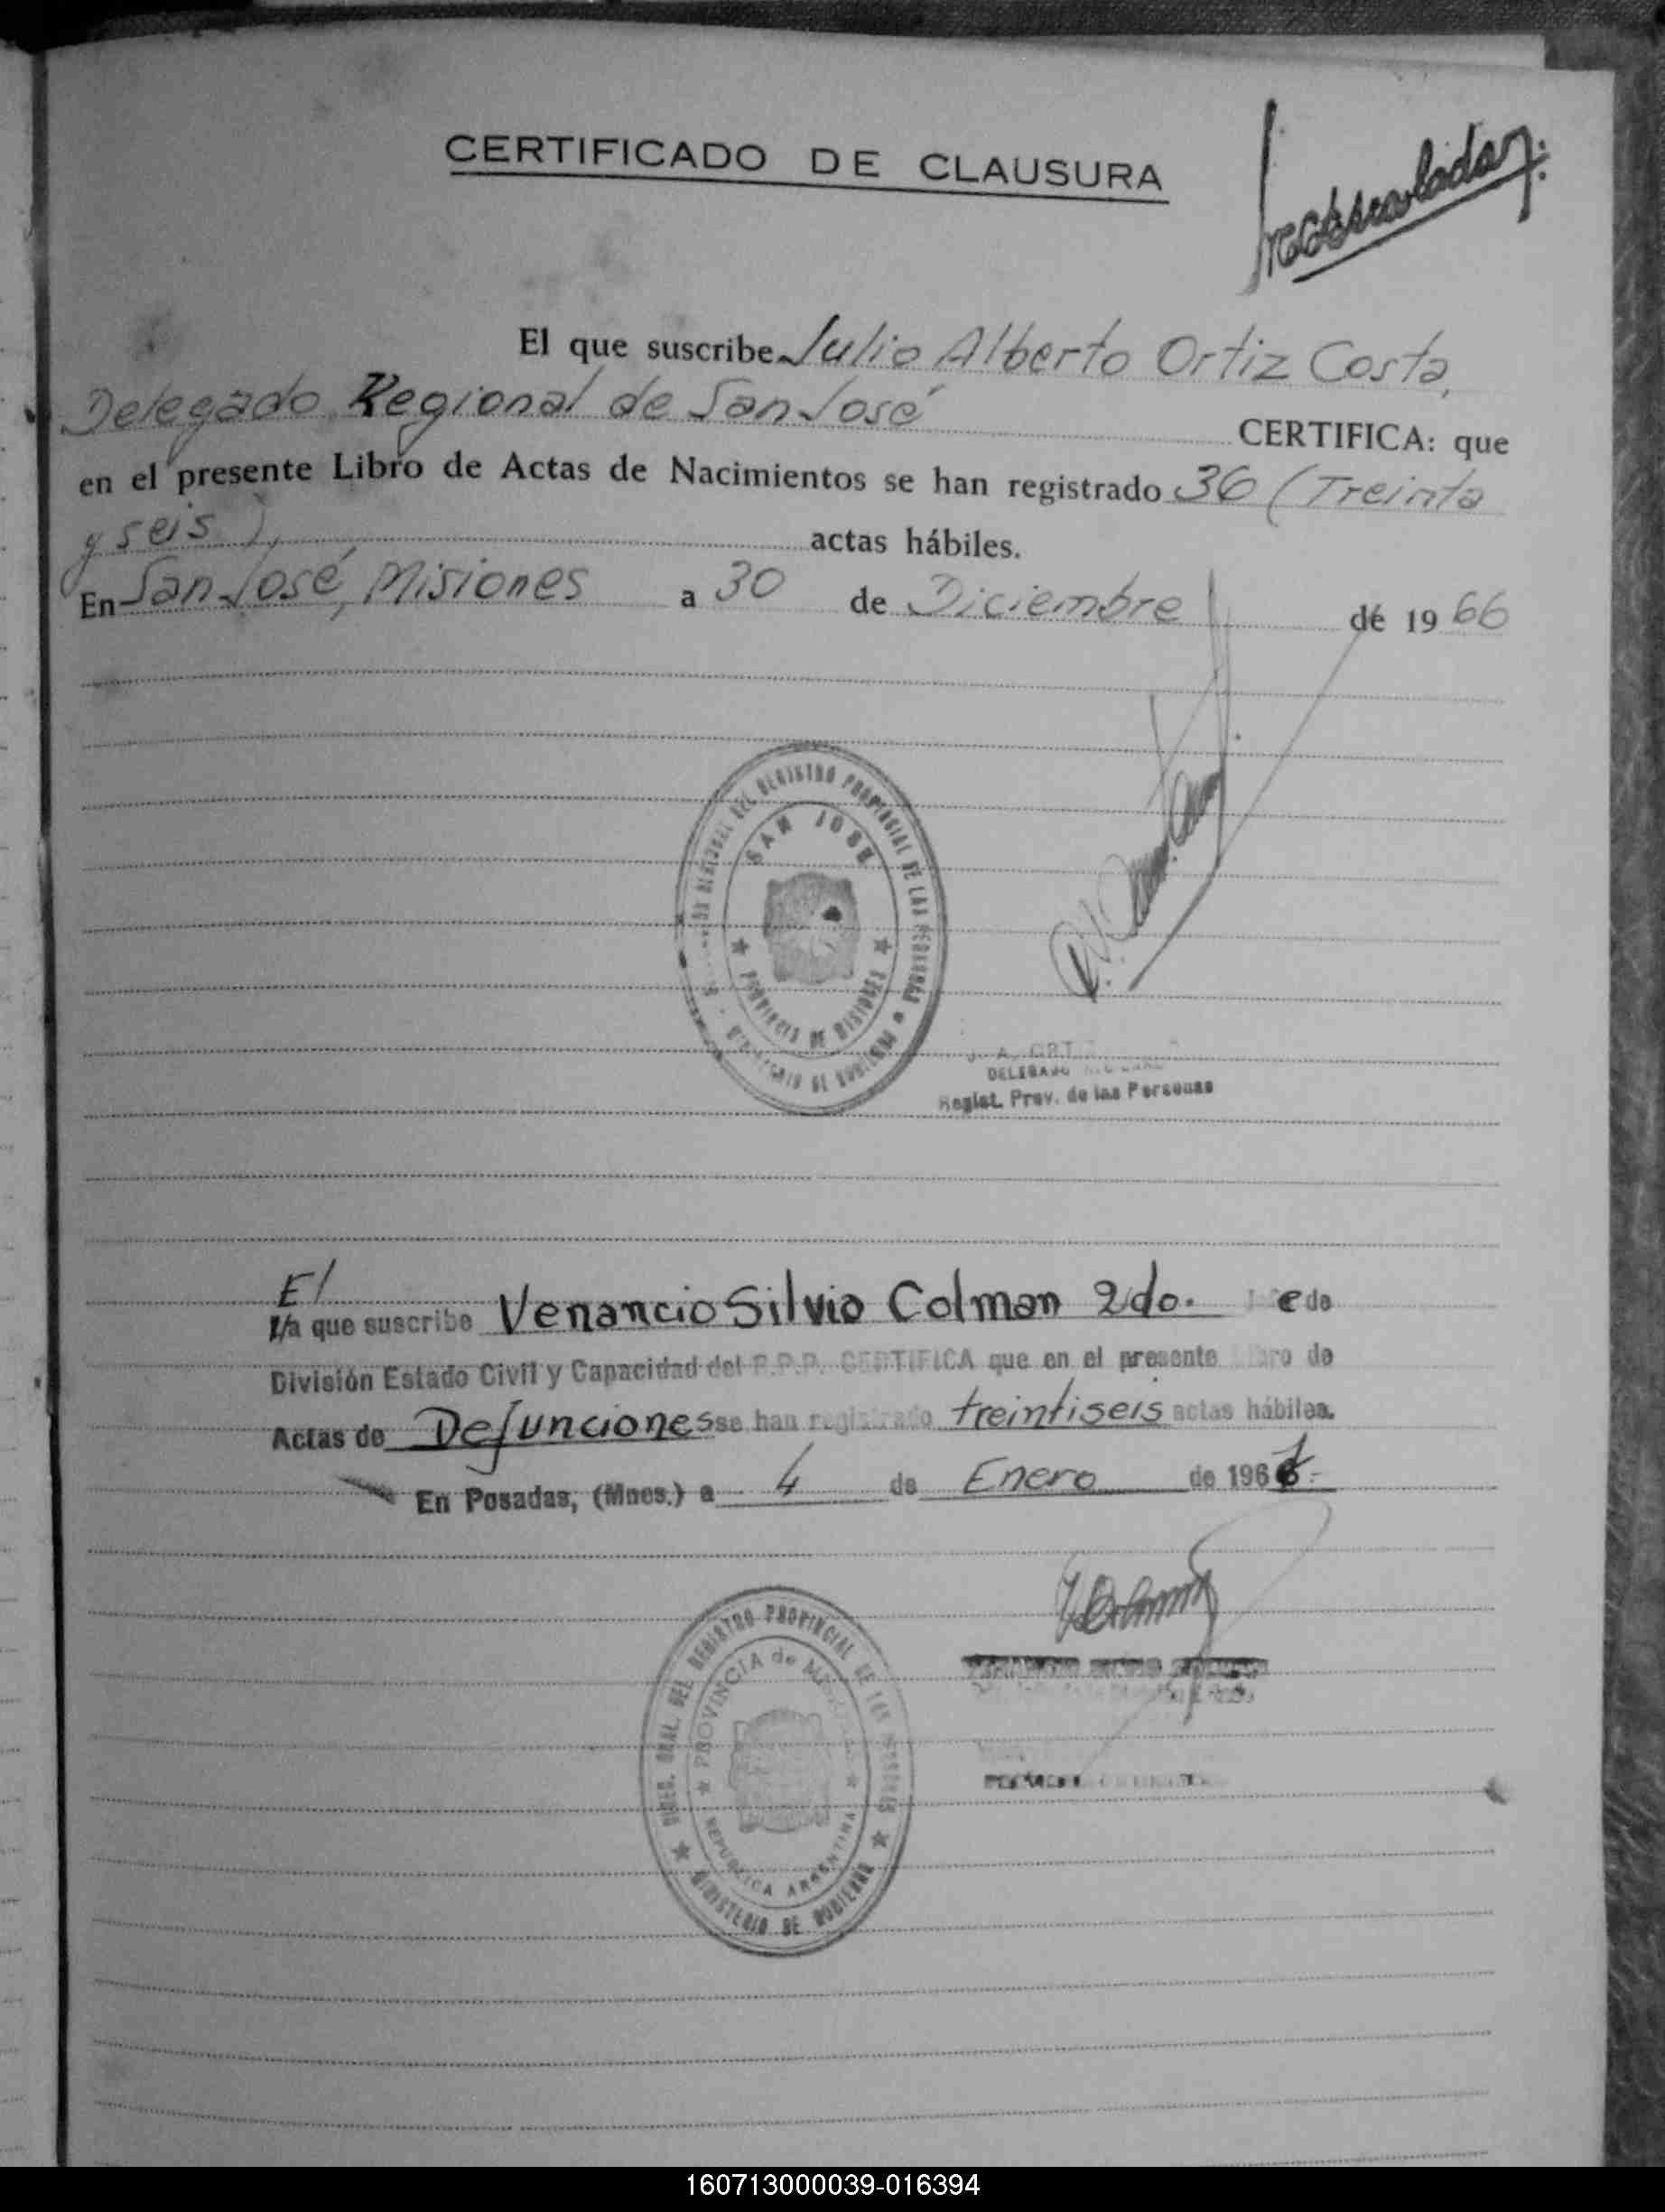 CERTIFICADO DE CLAUSURA
El que suscribe Julio Alberto Ortiz Costa,
Delegado Regional de San José CERTIFICA: que
en el presente Libro de Actas de Nacimientos se han registrado 36 (Treinta
y seis), actas hábiles.
En San José, Misiones a 30 de Diciembre de 1966
REGISTRO PROVINCIAL DE LAS PERSONAS
SAN JOSE
PROVINCIA DE MISIONES
J. A. ORT
DELEGADO
Regist. Prov. de las Personas
El
La que suscribe Venancio Silvio Colman 2do. e de
División Estado Civil y Capacidad del R.P.P. CERTIFICA que en el presente Libro de
Actas de Defunciones se han registrado treintiseis actas hábiles.
En Posadas, (Mnes.) a 4 de Enero de 1967.-
DIREC. GRAL. DEL REGISTRO PROVINCIAL DE LAS PERSONAS
PROVINCIA de MISIONES
REPUBLICA ARGENTINA
MINISTERIO DE GOBIERNO
160713000039-016394